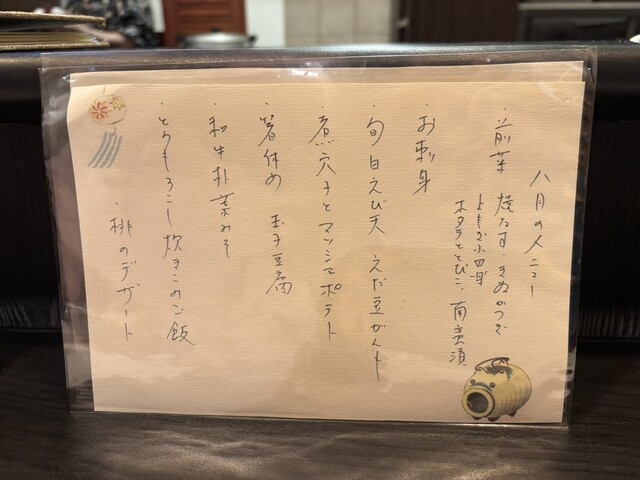 八月のメニュー
・前菜 焼なす・きぬかつぎ
とうもろこし
ホタテととびこ、南蛮漬
・お刺身
・旬 白えび天 えだ豆がんも
・煮穴子とマッシュポテト
・箸休め 玉子豆腐
・和牛朴葉みそ
・とうもろこし炊きこみご飯
・桃のデザート